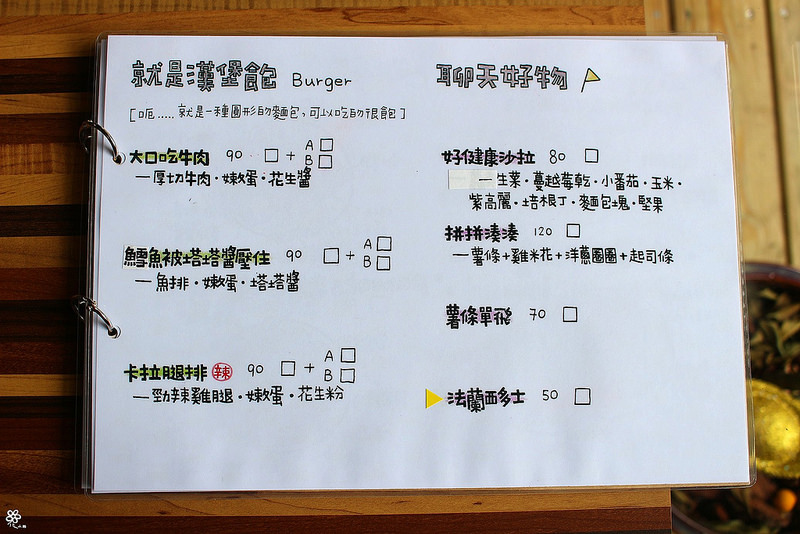 就是漢堡飽 Burger
[呃..... 就是一種圓形的麵包,可以吃的很飽]
大口吃牛肉 90 □ + A □ B □
—厚切牛肉·嫩蛋·花生醬
鱈魚被塔塔醬壓住 90 □ + A □ B □
—魚排·嫩蛋·塔塔醬
卡拉腿排 辣 90 □ + A □ B □
—勁辣雞腿·嫩蛋·花生粉
聊天好物
好健康沙拉 80 □
—生菜·蔓越莓乾·小番茄·玉米·
紫高麗·培根丁·麵包塊·堅果
拼拼湊湊 120 □
—薯條+雞米花+洋蔥圈圈+起司條
薯條單飛 70 □
法蘭西多士 50 □